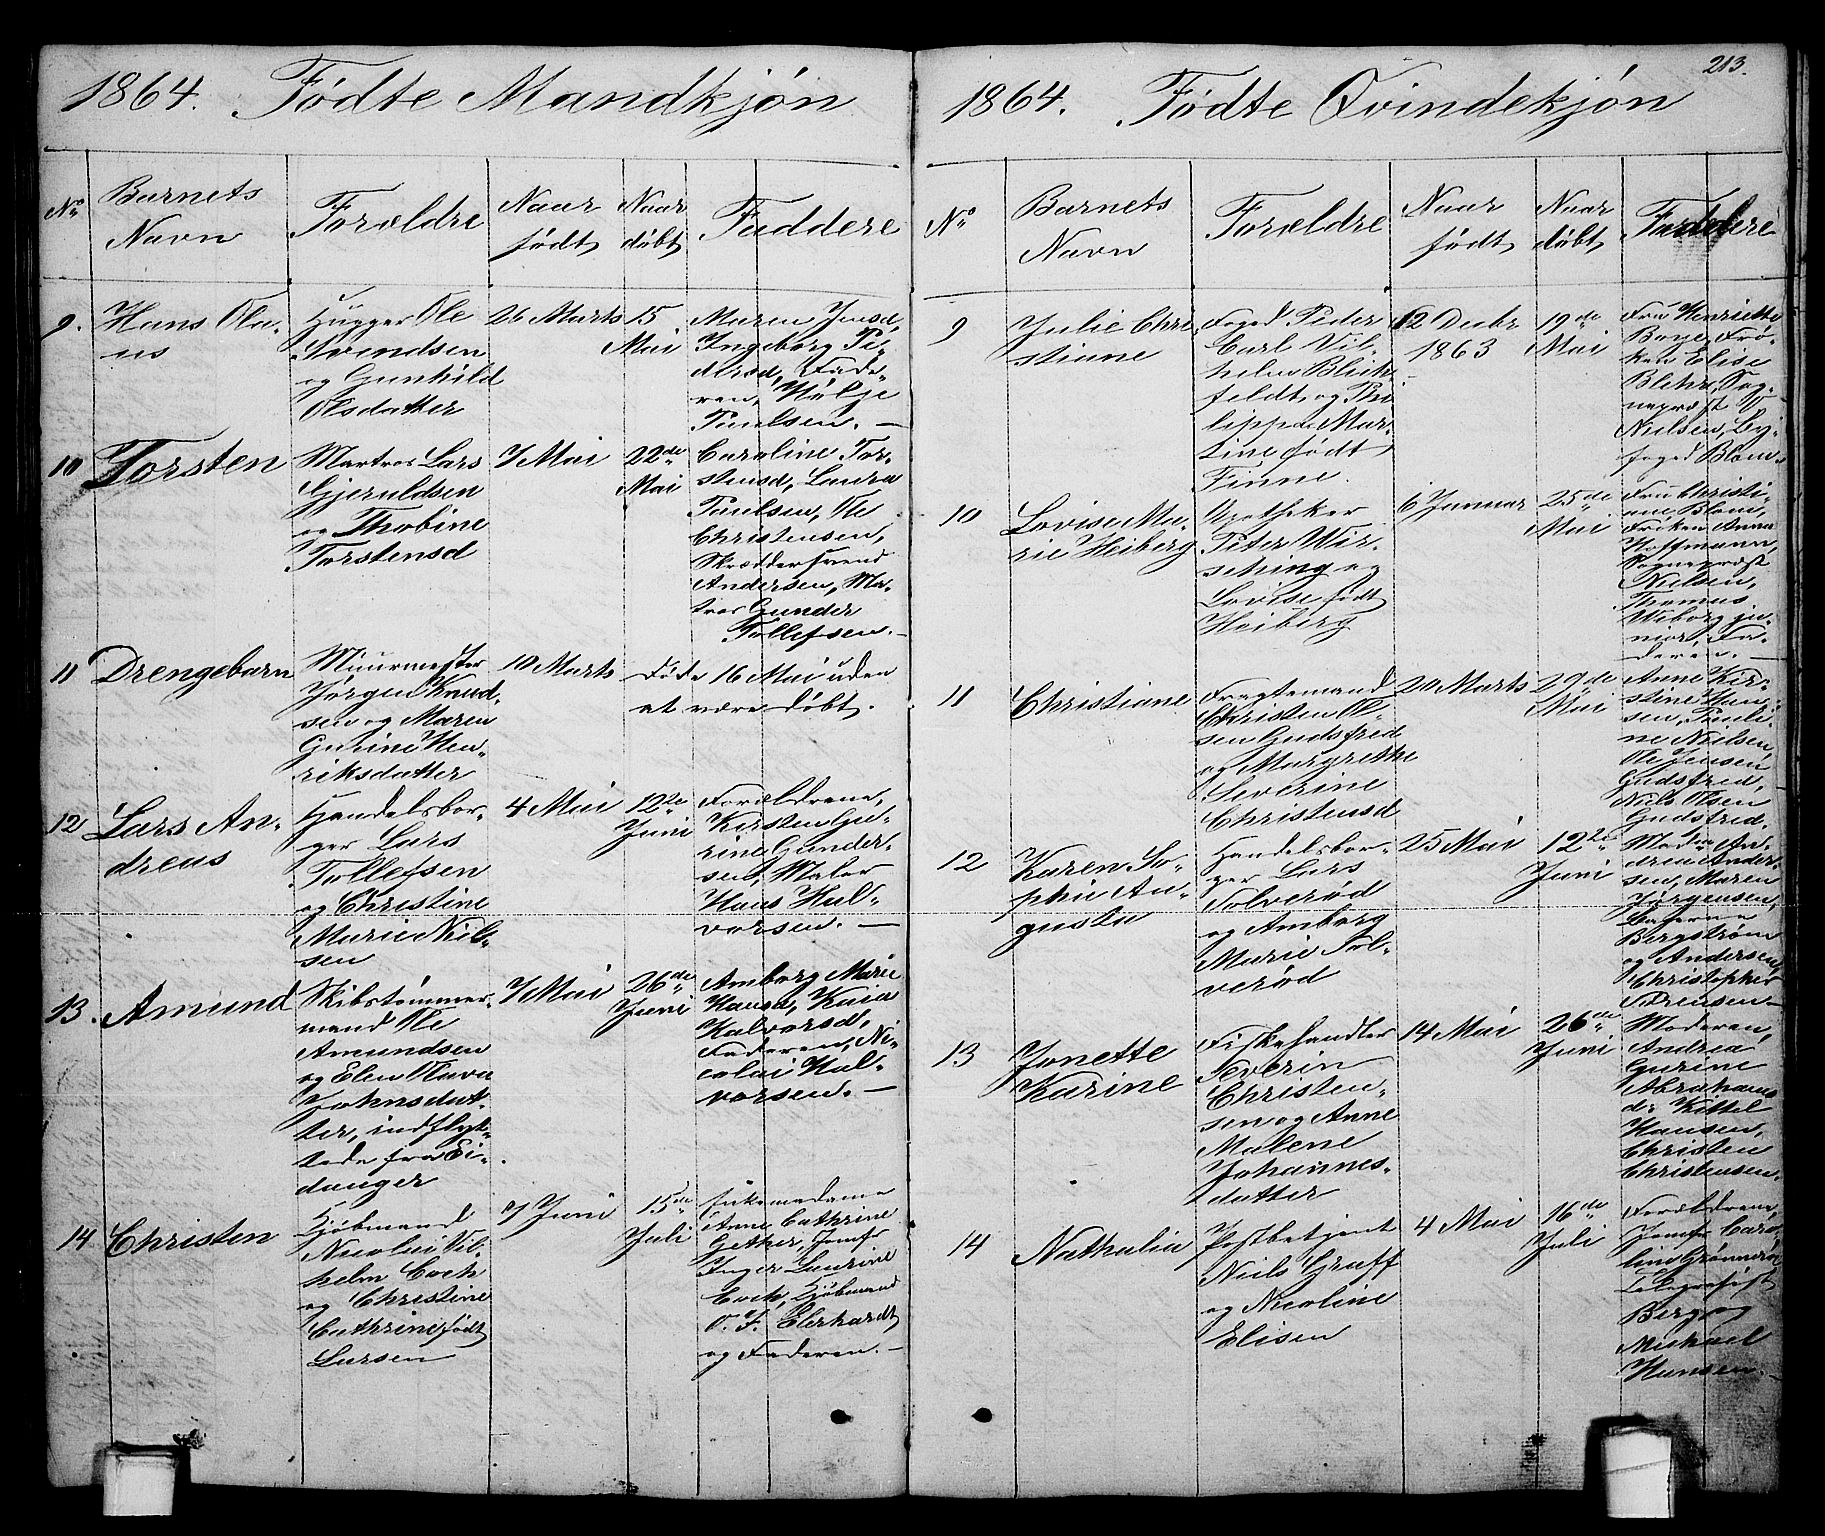 1864. Fødte Mandkjøn
No
Barnets
Navn
Forældre
Naar
født
Naar
døbt
Faddere
9. Hans Ola-
us
Hugger Ole
Svendsen
og Gunhild
Olsdatter
26 Marts
15
Mai
Maren Jensd,
Ingeborg Pe-
dersd, Fade-
ren, Helje
Paulsen. —
10 Torsten
Martros Lars
Gjeruldsen
og Thobine
Torstensd
7 Mai
22de
Mai
Caroline Tor-
stensd, Laura
Paulsen, Ole
Christensen,
Skrædder Svend
Andersen, Ma-
tros Gunder
Tollefsen. —
11 Drengebarn
Muurmester
Jørgen Knud-
sen og Maren
Gurine Hen-
riksdatter
10 Marts
Døde 16 Mai uden
at være døbt.
12 Lars An-
dreas
Handelsbor-
ger Lars
Tollefsen
og Christine
Marie Niel-
sen
4 Mai
12te
Juni
Forældrene,
Kirsten Gu-
rine Gunder-
sen, Maler
Hans Hal-
vorsen. —
13. Amund
Skibstømmer-
mand Ole
Amundsen
og Elen Olava
Johnsdat-
ter, indflyt-
tede fra Ei-
danger
7 Mai
26de
Juni
Amborg Marie
Hansd, Kaia
Halvorsd,
Faderen, Ni-
colai Hal-
vorsen. —
14 Christen
Kjøbmand
Nicolai Vil-
helm Coch
og Christine
Cathrine født
Larsen
7 Juni
15de
Juli
Enkemadame
Anne Cathrine
Gether, Jomfr
Inger Laurine
Coch, Kjøbmand
O. F. Eberhardt
og Faderen. —
213.
1864. Fødte Qvindekjøn
No
Barnets
Navn
Forældre
Naar
født
Naar
døbt
Faddere
9 Julie Chri
stiane
Foged Peder
Carl Vil-
helm Blich
feldt og Phi
lippa Mar-
tine født
Finne.
12 Decbr
1863
19de
Mai
Fru Henriette
Boye, Frø-
ken Elise
Blehr, Sog-
nepræst
Nielsen, By-
foged Blom
10 Lovise Ma-
rie Heiberg
Apotheker
Peter Wir-
sching og
Lovise født
Heiberg
6 Januar
25de
Mai
Fru Christi-
ane Blom,
Frøken Anna
Hoffmann,
Sognepræst
Nielsen,
Thomas
Wiborg ju-
nior, Fa-
deren. —
11 Christiane
Fragtemand
Christen Ol-
sen Gudsfred
og Margrethe
Severine
Christensd
20 Marts
29de
Mai
Anne Kir-
stine Han-
sen, Pauli
ne Nielsen,
Ole Jensen
Gudsfred,
Niels Olsen
Gudsfred.
12 Karen So-
phie Au-
gusta
Handelsbor-
ger Lars
Solverød
og Amborg
Marie Sol-
verød
25 Mai
12te
Juni
Madm An-
drea Ander-
sen, Maren
Jørgensen,
Bergstrøm
og Andersen,
Christopher
Sørensen —
13 Jonette
Karine
Fiskehandler
Severin
Christen-
sen og Anne
Malene
Johannes-
datter
14 Mai
26de
Juni
Moderen,
Andrea
Gurine
Abrahams
d: Kittel
Hansen,
Christen
Christensen.
14 Nathalia
Postbetjent
Niels Graff
og Nicoline
Elisen
4 Mai
16de
Juli
Forældrene,
Jomfr Caro
line Grønnerøn
Telegrafist
Berg og
Michael
Hansen. —